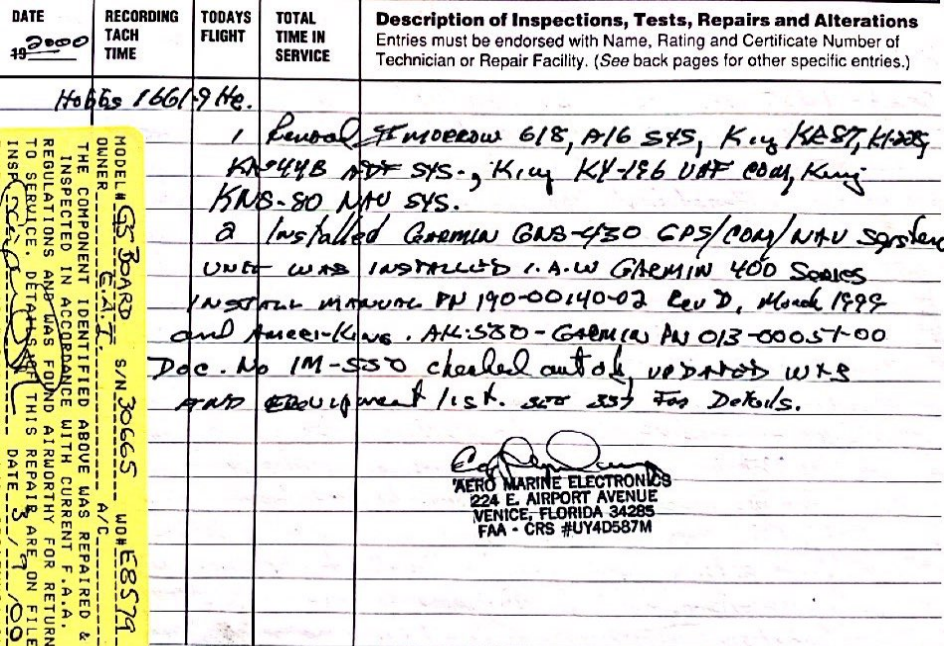 DATE
19 2000
RECORDING
TACH
TIME
TODAYS
FLIGHT
TOTAL
TIME IN
SERVICE
Description of Inspections, Tests, Repairs and Alterations
Entries must be endorsed with Name, Rating and Certificate Number of
Technician or Repair Facility. (See back pages for other specific entries.)
Hobbs 1661.9 Hr.
1 II MORROW 618, A16 SYS, King
KR-44B ADF SYS., King KY-196 COM, King
KNS-80 NAV SYS.
2 Installed GARMIN GNS-430 GPS/COM/NAV System
UNIT WAS INSTALLED I.A.W GARMIN 400 Series
INSTALL MANUAL PN 190-00140-02 Rev D, March 1999
and Ameri-King. AK-550-GARMIN PN 013-00051-00
Doc. No IM-550 checked out ok, UPDATED W&B
AND EQuipment list. 337 For Details.
AERO MARINE ELECTRONICS
224 E. AIRPORT AVENUE
VENICE, FLORIDA 34285
FAA - CRS #UY4D587M
MODEL# GS BOARD S/N 30665 WO# E8579
OWNER E.A.I. A/C
THE COMPONENT IDENTIFIED ABOVE WAS REPAIRED &
INSPECTED IN ACCORDANCE WITH CURRENT F.A.A.
REGULATIONS AND WAS FOUND AIRWORTHY FOR RETURN
TO SERVICE. DETAILS OF THIS REPAIR ARE ON FILE
INSP DATE 3/9/00